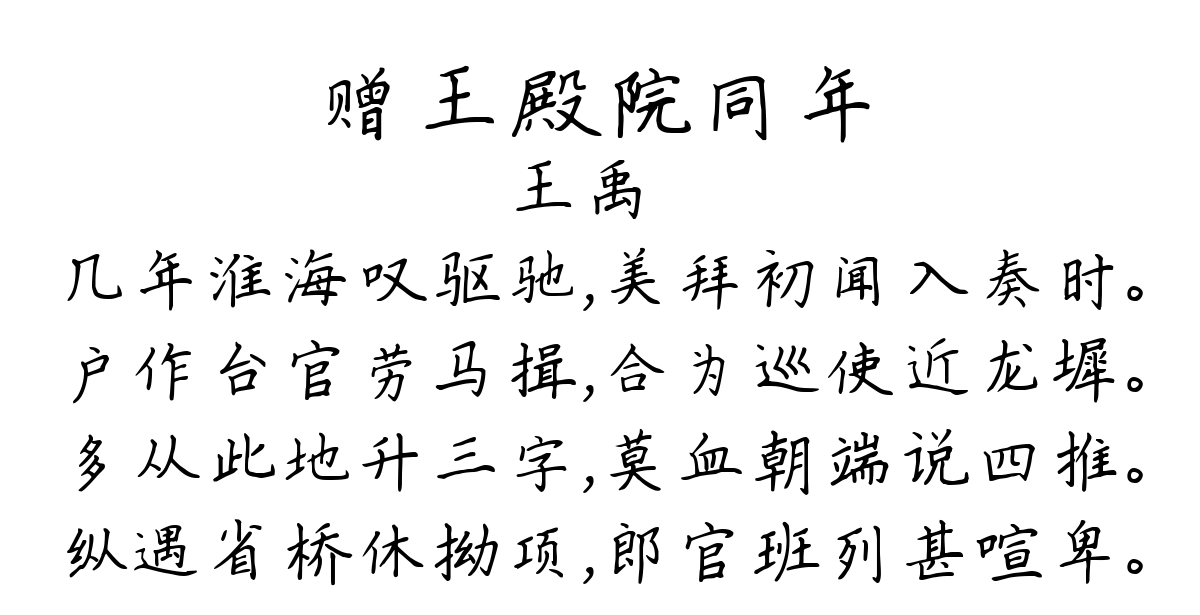 赠王殿院同年
王禹
几年淮海叹驱驰,美拜初闻入奏时。
户作台官劳马揖,合为巡使近龙墀。
多从此地升三字,莫血朝端说四推。
纵遇省桥休拗项,郎官班列甚喧卑。